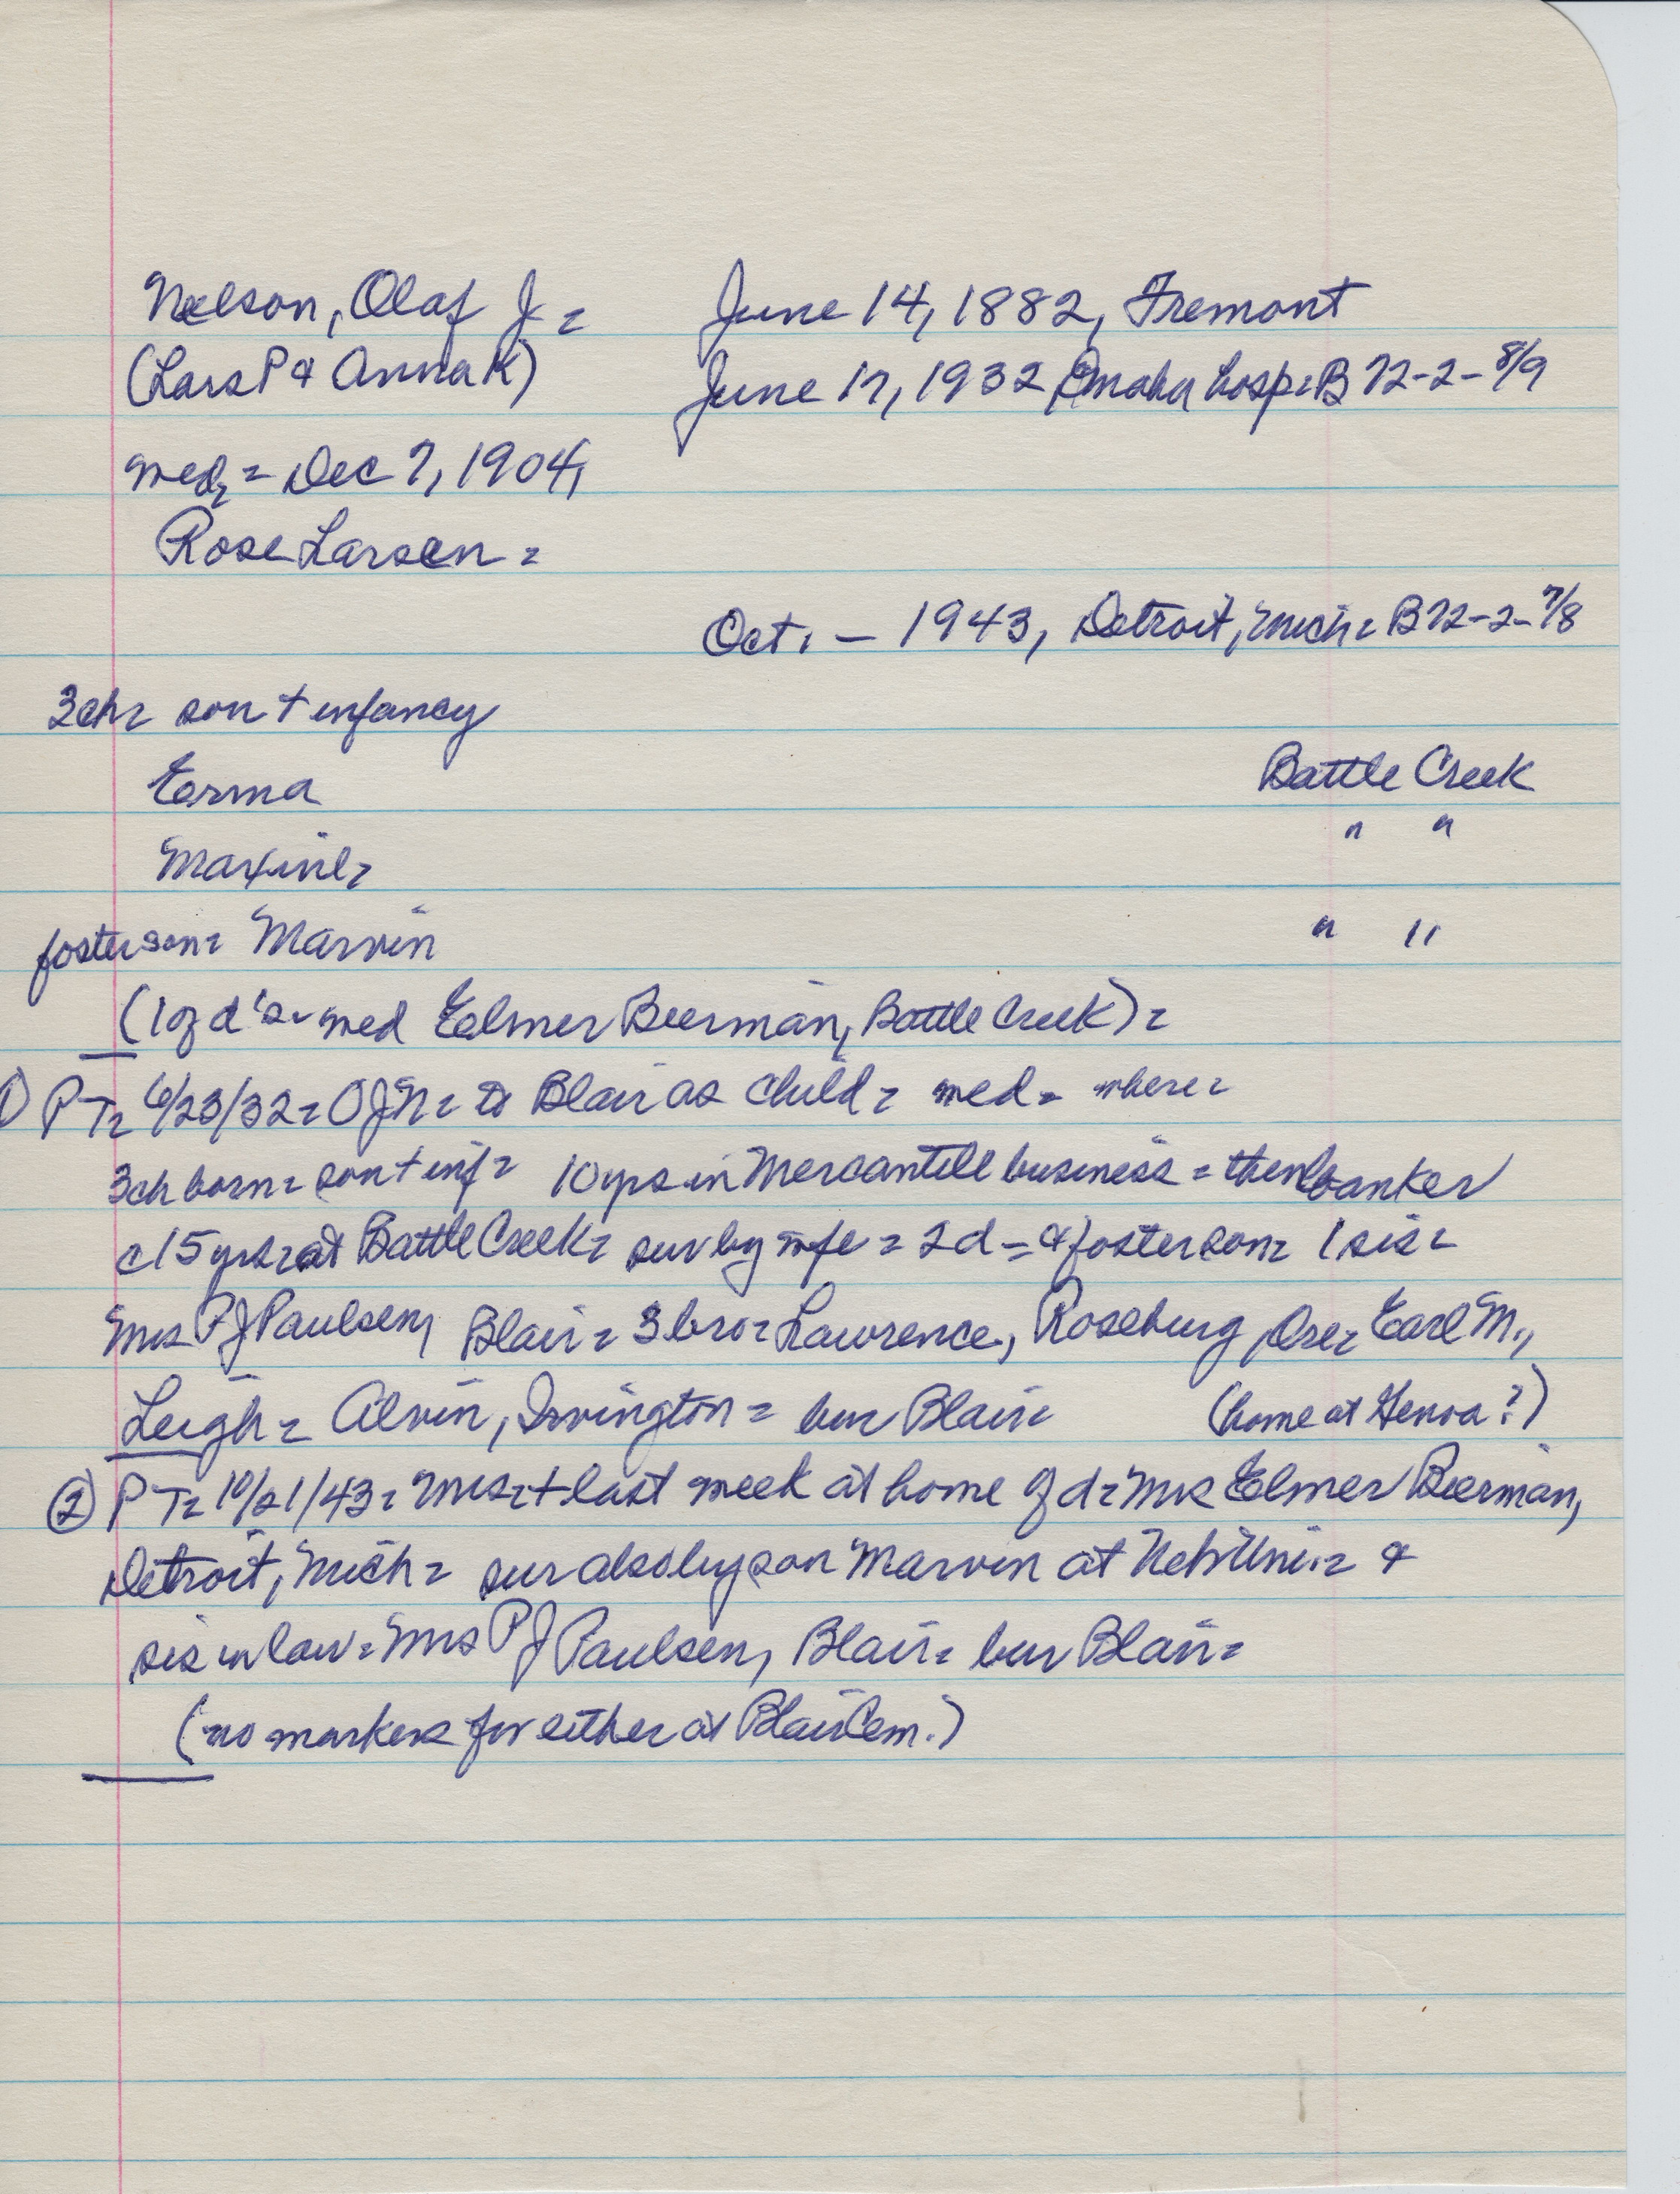 Nelson, Olaf J = June 14, 1882, Fremont
(Lars P & Anna K) June 17, 1932, Omaha hosp = B 72-2-8/9
med = Dec 7, 1904,
Rose Larsen =
Oct. – 1943, Detroit, Mich = B 72-2-7/8
3ch = son + infancy
Erma Battle Creek
Maxine = " "
foster son = Marvin " "
(1 of d's - med Elmer Beerman, Battle Creek) =
① PT = 6/23/32 = OJN = to Blair as child = med = where =
3ch born = son + inf = 10 yrs in Mercantile business = then banker
c15 yrs = at Battle Creek = sur by wife = 2d = & foster son = 1 sis =
Mrs P J Paulsen, Blair = 3 bro = Lawrence, Roseburg, Ore = Earl M.,
Leigh = Alvin, Irvington = bur Blair = (home at Genoa?)
② PT = 10/21/43 = Mrs = + last week at home of d = Mrs Elmer Beerman,
Detroit, Mich = sur also by son Marvin at Neb Uni. = &
sis in law = Mrs P J Paulsen, Blair = bur Blair =
(no markers for either at Blair Cem.)